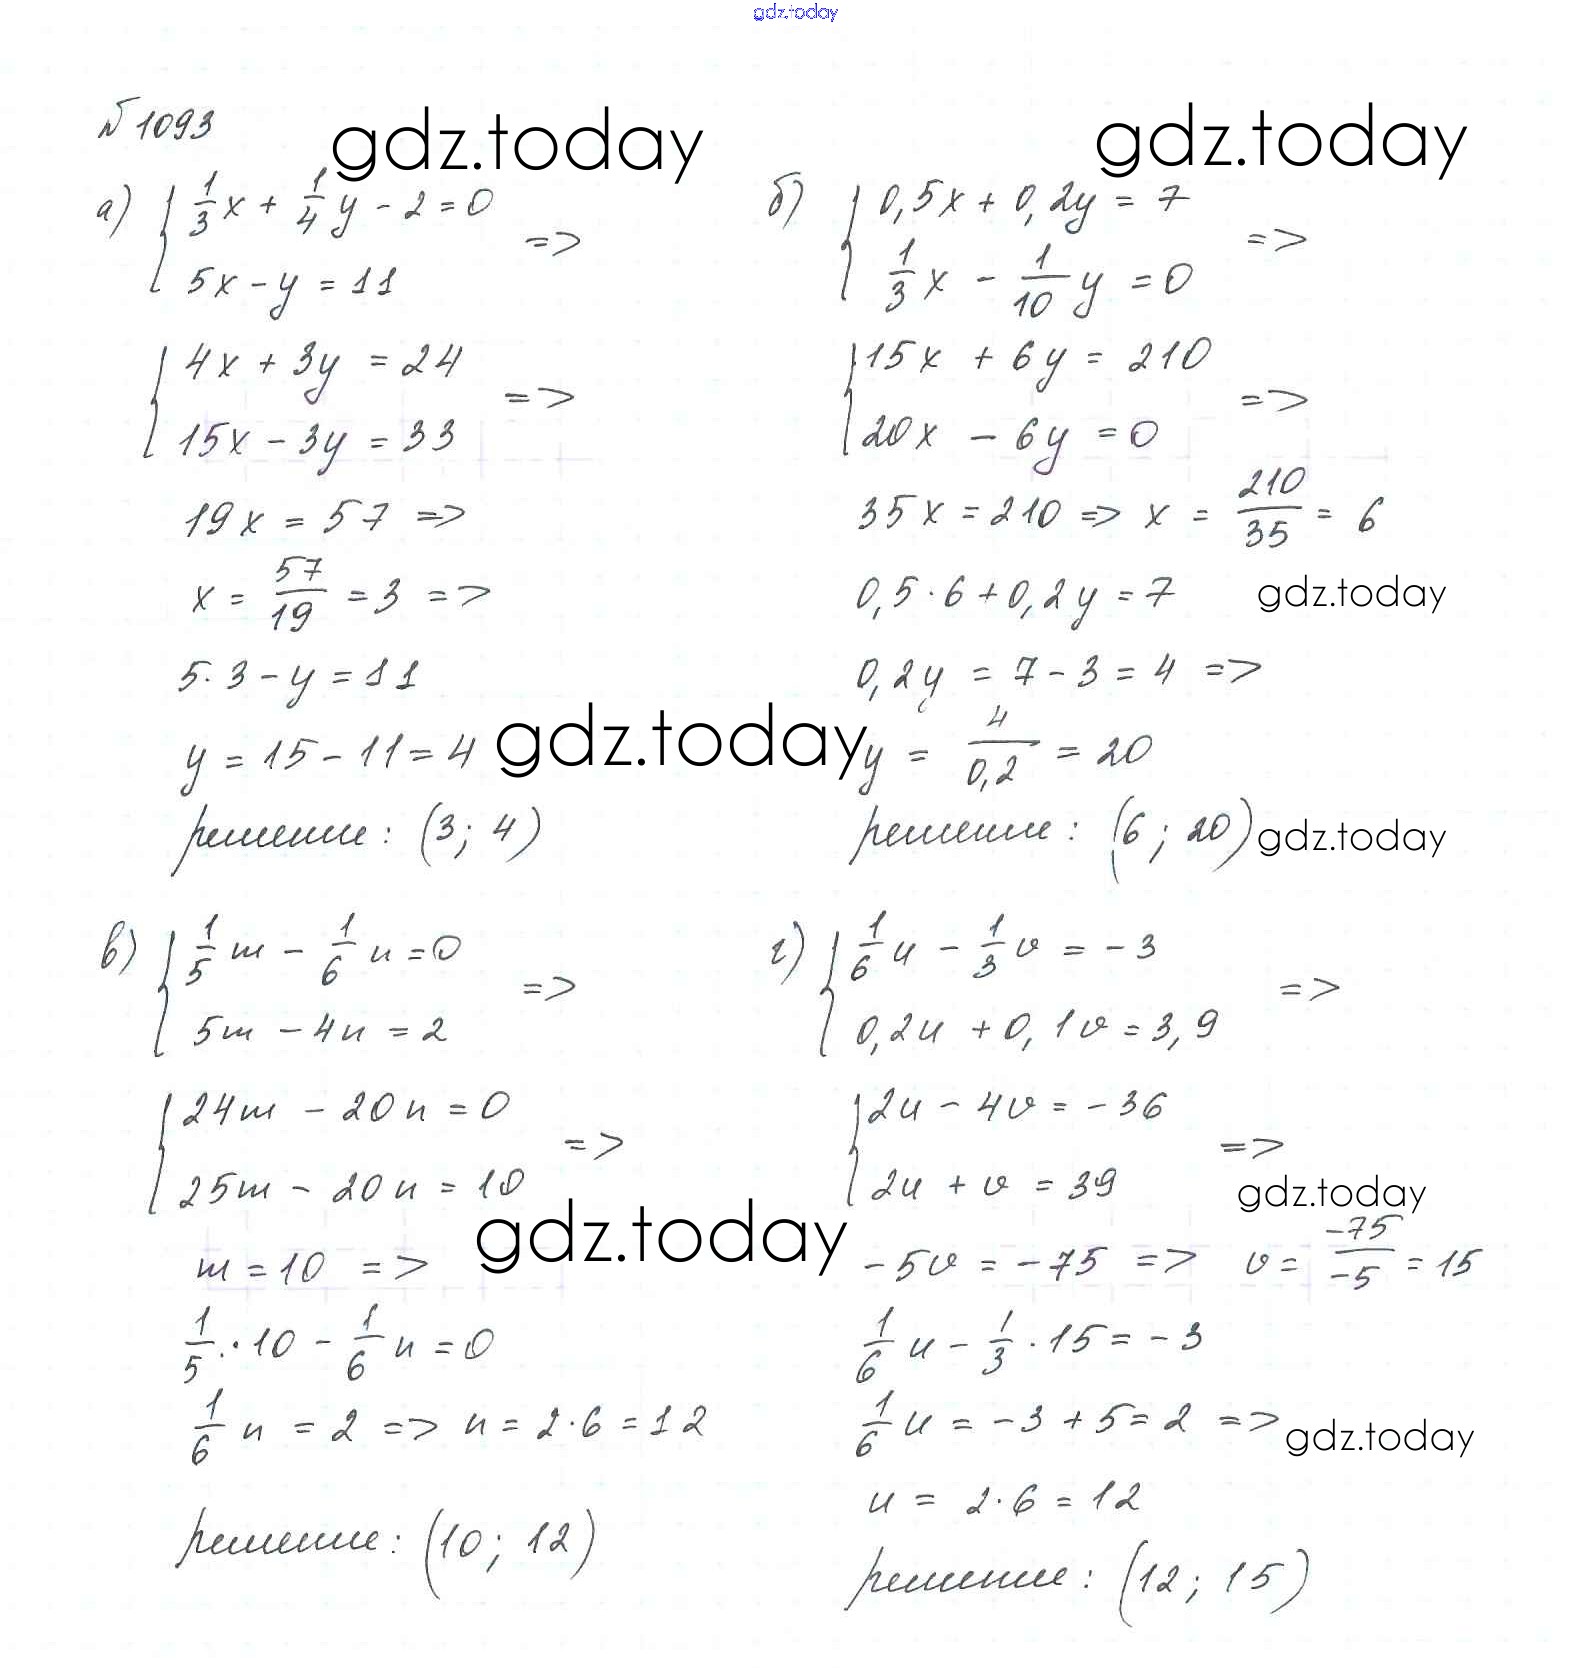 gdz.today
№ 1093
gdz.today
gdz.today
а) { 1/3 x + 1/4 y - 2 = 0
5x - y = 11 =>
{ 4x + 3y = 24
15x - 3y = 33 =>
19x = 57 =>
x = 57/19 = 3 =>
5·3 - y = 11
y = 15 - 11 = 4
gdz.today
решение: (3; 4)
б) { 0,5x + 0,2y = 7
1/3 x - 1/10 y = 0 =>
{ 15x + 6y = 210
20x - 6y = 0 =>
35x = 210 => x = 210/35 = 6
0,5·6 + 0,2y = 7
gdz.today
0,2y = 7 - 3 = 4 =>
y = 4/0,2 = 20
решение: (6; 20)
gdz.today
в) { 1/5 m - 1/6 n = 0
5m - 4n = 2 =>
{ 24m - 20n = 0
25m - 20n = 10 =>
gdz.today
m = 10 =>
1/5 · 10 - 1/6 n = 0
1/6 n = 2 => n = 2·6 = 12
решение: (10; 12)
г) { 1/6 u - 1/3 v = -3
0,2u + 0,1v = 3,9 =>
{ 2u - 4v = -36
2u + v = 39 =>
gdz.today
-5v = -75 => v = -75/-5 = 15
1/6 u - 1/3 · 15 = -3
1/6 u = -3 + 5 = 2 =>
gdz.today
u = 2·6 = 12
решение: (12; 15)